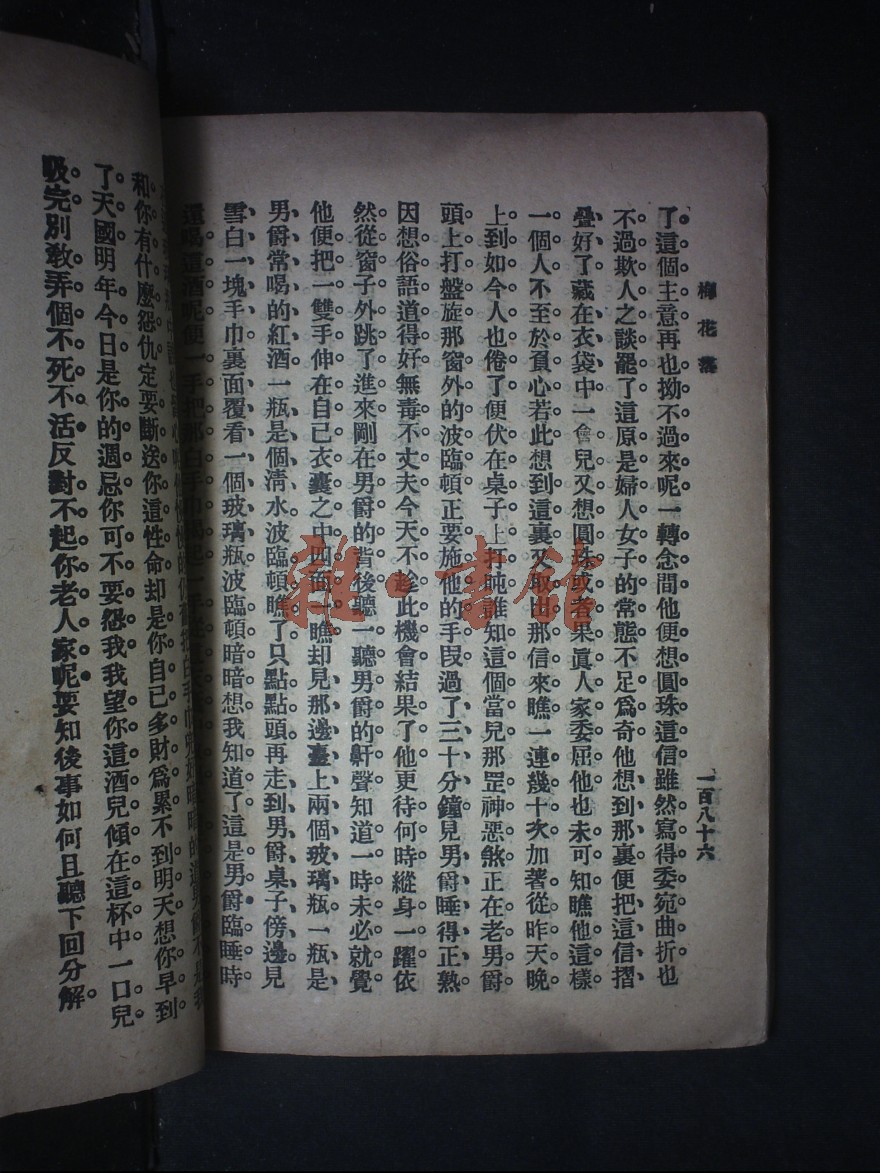 梅花落
一百八十六
了。這個主意再也拗不過來呢。一轉念間他便想圓珠這信雖然寫得委宛曲折也
不過欺人之談罷了。這原是婦人女子的常態不足爲奇。他想到那裏便把這信摺
疊好了藏在衣袋中。一會兒又想圓珠或者果眞人家委屈他也未可知。瞧他這樣
一個人不至於負心若此。想到這裏又取出那信來瞧一連幾十次。加著從昨天晚
上到如今人也倦了。便伏在桌子上打盹。誰知這個當兒那罡神惡煞正在老男爵
頭上打盤旋。那窗外的波臨頓正要施他的手段過了三十分鐘見男爵睡得正熟。
因想俗語道得好無毒不丈夫今天不趁此機會結果了他更待何時。縱身一躍依
然從窗子外跳了進來。剛在男爵的背後聽一聽男爵的鼾聲知道一時未必就覺
他便把一雙手伸在自己衣囊之中。四面一瞧却見那邊臺上兩個玻璃瓶、一瓶是
男爵常喝的紅酒、一瓶是個清水。波臨頓瞧了只點點頭。再走到男爵桌子傍邊、見
雪白一塊手巾裏面覆看一個玻璃瓶。波臨頓暗暗想我知道了。這是男爵臨睡時
還喝這酒呢。便一手把那白手巾
和你有什麼怨仇定要斷送你這性命却是你自己多財爲累。不到明天想你早到
了天國。明年今日是你的週忌。你可不要怨我。我望你這酒兒傾在這杯中一口兒
吸完。別敎弄個不死不活反對不起你老人家呢。要知後事如何且聽下回分解。
雜·書館